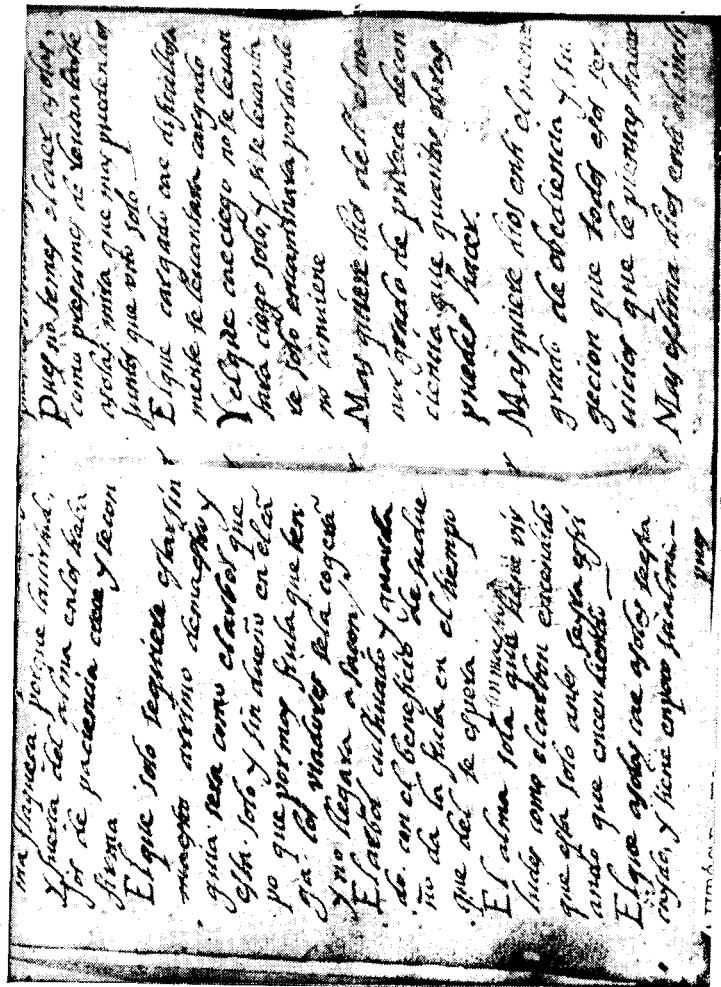 ma flaqueza. porque la uirtud.
y fuerça del alma en los traba
jos de paciencia crece y se con
firma
El que solo se quiere estar sin
maestro arrimo de maestro y
guia. sera como el arbol que
esta. solo y sin dueño en el cã
po que por mas fruta que ten
ga. los viadores se la cogerã
y no llegara a saçon.
El arbol cultiuado y guarda
do. con el beneficio de su due
ño da la fruta en el tiempo
que del se espera
sin maestro
El alma sola que tiene vir
tudes como el carbon encendido
que esta solo antes se yra esfri
ando que encendiendo
El que a solas cae a solas se esta
caydo. y tiene en poco su alma
pues
Pues no temes el caer a solas,
como presumes de leuantarte
a solas. mira que mas pueden dos
juntos que vno solo
El que cargado cae dificultosa
mente se leuantara cargado
Y el que cae ciego no se leuan
tara ciego solo, y si se leuanta
re solo encaminara por donde
no conuiene
Mas quiere dios de ti el me
nor grado de pureça de con
ciencia que quantas obras
puedes hacer.
Mas quiere dios en ti el menor
grado de obediencia y su
gecion que todos esos ser
uicios que le piensas hacer
Mas estima dios en ti el incli